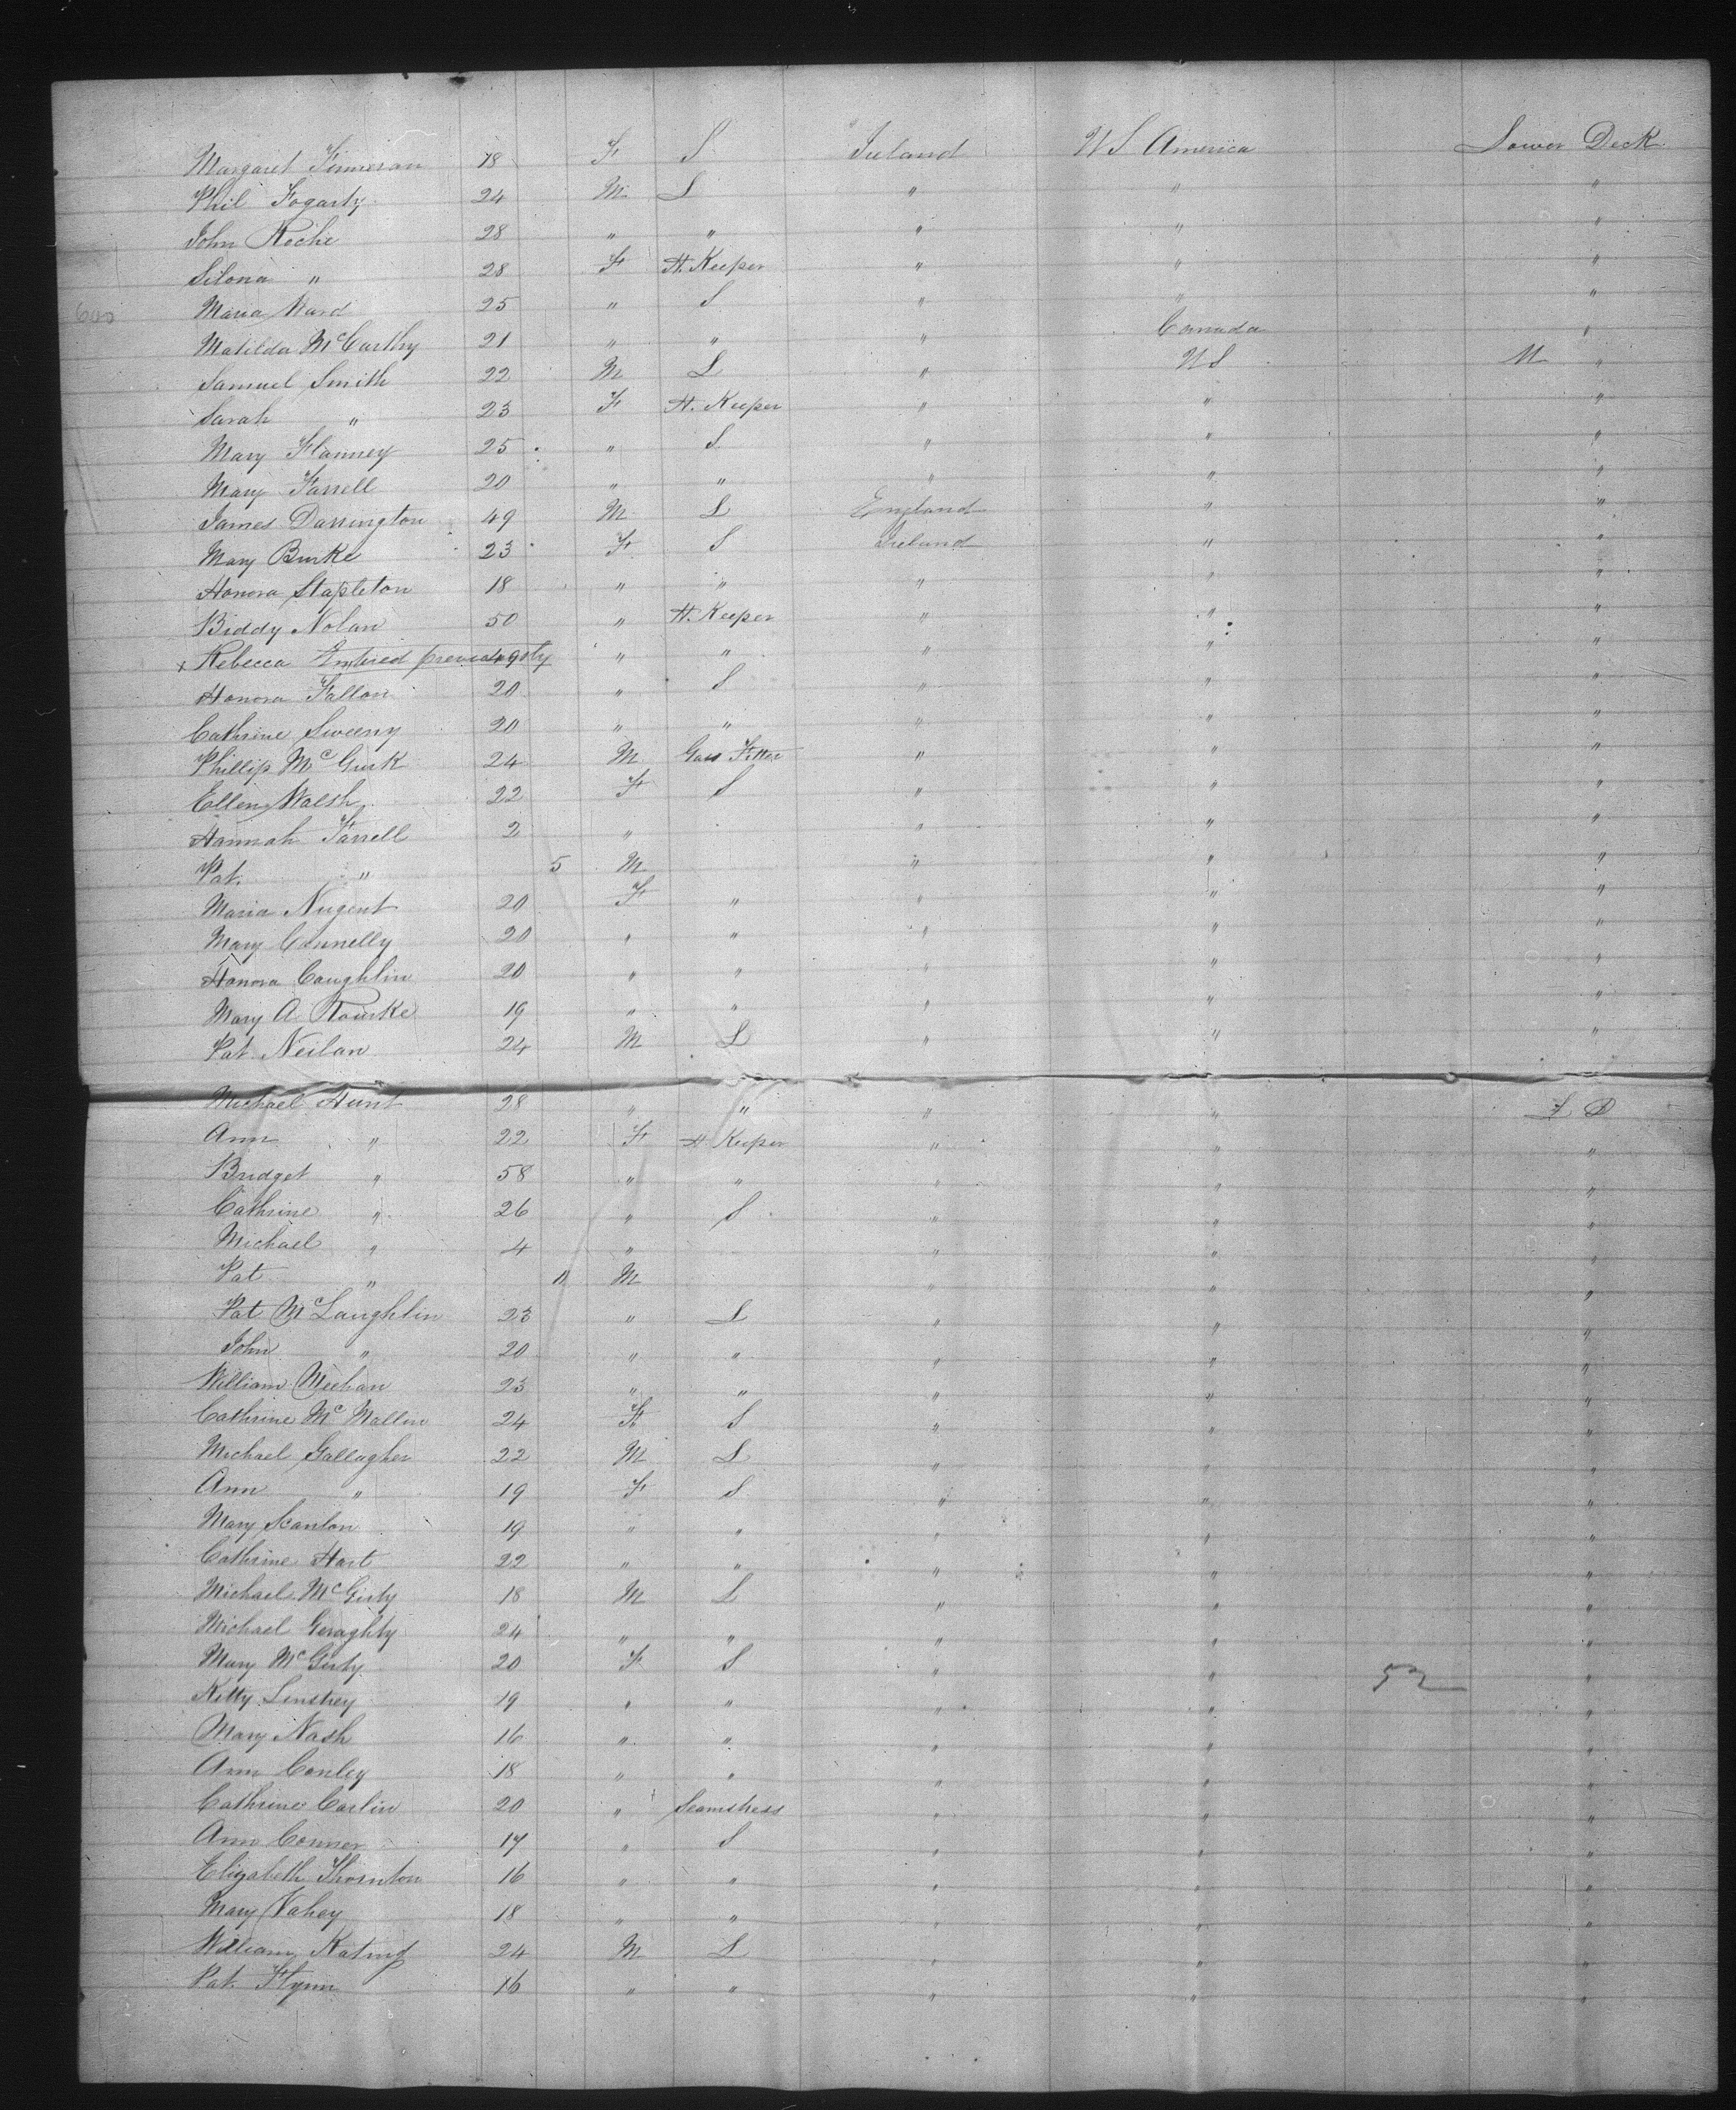 Margaret Finneran 18 F S Ireland U S America Lower Deck
Phil Fogarty 24 M L " " "
John Roche 28 " " " " "
Silona " 28 F H. Keeper " " "
600 Maria Ward 25 " S " " "
Matilda McCarthy 21 " " " Canada "
Samuel Smith 22 M L " U S M "
Sarah " 23 F H. Keeper " " "
Mary Flanney 25 " S " " "
Mary Farrell 20 " " " " "
James Darrington 49 M L England " "
Mary Burke 23 F S Ireland " "
Honora Stapleton 18 " " " " "
Biddy Nolan 50 " H. Keeper " " "
x Rebecca Entered previously 49 " " " "
Honora Fallon 20 " S " " "
Cathrine Sweeny 20 " " " " "
Phillip McGurk 24 M Gass Fitter " " "
Ellen Walsh 22 F S " " "
Hannah Farrell 2 " " " "
Pat " 5 M " " "
Maria Nugent 20 F " " " "
Mary Connelly 20 " " " " "
Honora Coughlin 20 " " " " "
Mary A Rourke 19 " " " " "
Pat Neilan 24 M L " " "
Michael Hunt 28 " " " " L D
Ann " 22 F H Keeper " " "
Bridget " 58 " " " " "
Cathrine " 26 " S " " "
Michael " 4 " " " "
Pat " 11 M " " "
Pat McLaughlin 23 " L " " "
John " 20 " " " " "
William Meehan 23 " " " " "
Cathrine McMallin 24 F S " " "
Michael Gallagher 22 M L " " "
Ann " 19 F S " " "
Mary Scanlon 19 " " " " "
Cathrine Hart 22 " " " " "
Michael McGirty 18 M L " " "
Michael Geraghty 24 " " " " "
Mary McGirty 20 F S " " 52 "
Kitty Linskey 19 " " " " "
Mary Nash 16 " " " " "
Ann Conley 18 " " " " "
Cathrine Carlin 20 " Seamstress " " "
Ann Conner 17 " S " " "
Elizabeth Thornton 16 " " " " "
Mary Vahey 18 " " " " "
William Kating 24 M L " " "
Pat Flynn 16 " " " " "